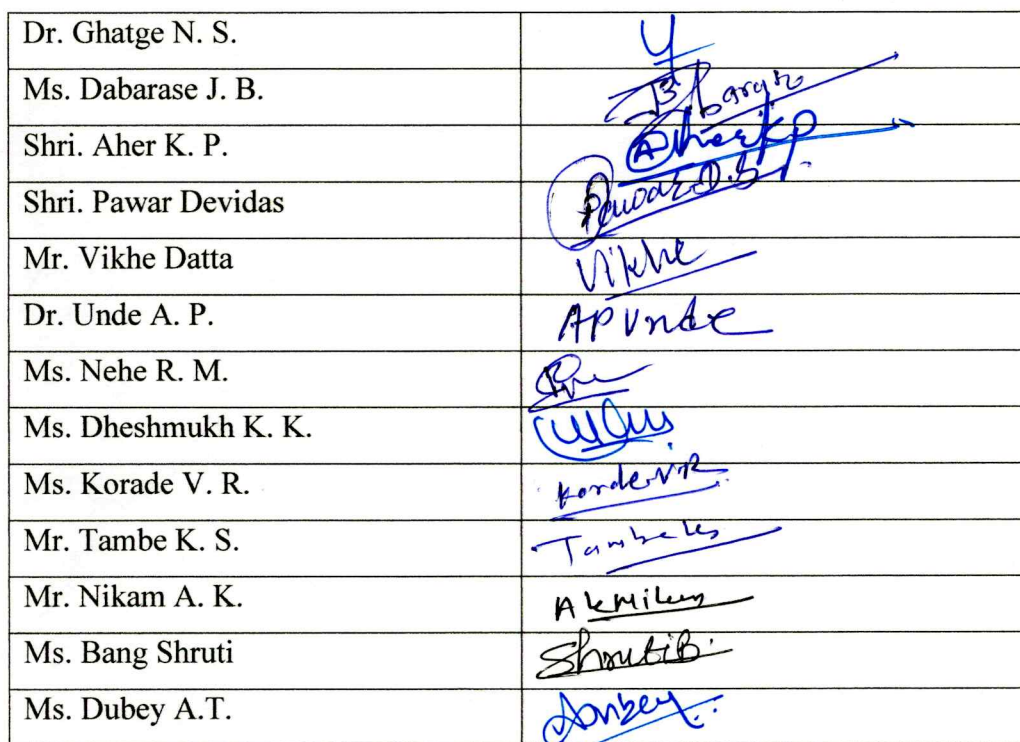 Dr. Ghatge N. S.
Ms. Dabarase J. B.
Shri. Aher K. P. Aher K P
Shri. Pawar Devidas Pawar D. B.
Mr. Vikhe Datta Vikhe
Dr. Unde A. P. AP Unde
Ms. Nehe R. M.
Ms. Dheshmukh K. K.
Ms. Korade V. R. Korde V R
Mr. Tambe K. S. Tambe ks
Mr. Nikam A. K.
Ms. Bang Shruti Shruti B.
Ms. Dubey A.T. Dubey